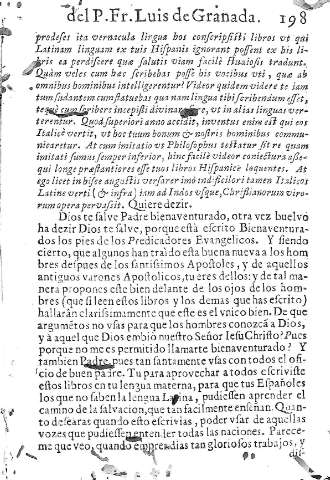 del P. Fr. Luis de Granada. 198
prodeses ita vernacula lingua hos conscripsisti libros vt qui
Latinam linguam ex tuis Hispanis ignorant possent ex his li-
bris ea perdiscere quæ salutis viam facilè
Quàm veles cum hæc scribebas posse his vocibus vti, quæ ab
omnibus hominibus intelligerentur! Videor quidem videre te iam
tum sudantem cum statuebas qua nam lingua tibi scribendum esset,
te qui cum scribere incepisti divinare, vt in alias linguas ver-
terentur. Quod superiori anno accidit, inventus enim est qui eos
Italicè vertit, vt hoc tuum bonum & nostris hominibus commu-
nicaretur. At cum imitatio vt Philosophus testatur sit re quam
imitati sumus semper inferior, hinc facilè videor coniectura asse-
qui longe præstantiores esse tuos libros Hispanicè loquentes. At
ego licet in bisce augustiis versarer
Latinè verti (& infra) iam ad Indos vsque, Christianorum viro-
rum opera pervasit. Quiere dezir.
Dios te salve Padre bienaventurado, otra vez buelvo
ha dezir Dios te salve, porque està escrito Bienaventura-
dos los pies de los Predicadores Evangelicos. Y siendo
cierto, que algunos han traido esta buena nueva a los hom
bres despues de los santissimos Apostoles, y de aquellos
antiguos varones Apostolicos, tu eres dellos: y de tal ma-
nera propones este bien delante de los ojos de los hom-
bres (que si leen estos libros y los demas que has escrito)
hallaràn clarissimamente que este es el vnico bien. De que
argumẽtos no vsas para que los hombres conozcà a Dios,
y à aquel que Dios embiò nuestro Señor Iesu Christo? Pues
porque no me es permitido llamarte bienaventurado? Y
tambien Padre, pues tan santamente vsas con todos el ofi-
cio de buen padre. Tu para aprovechar a todos escriviste
estos libros en tu lengua materna, para que tus Españoles
los que no saben la lengua Latina, pudiessen aprender el
camino de la salvacion, que tan facilmente enseñan. Quan-
to desearas quando esto escrivias, poder vsar de aquellas
vozes que pudiessen entender todas las naciones. Parece-
me que veo, quando emprendias tan gloriosos trabajos, y
dis-